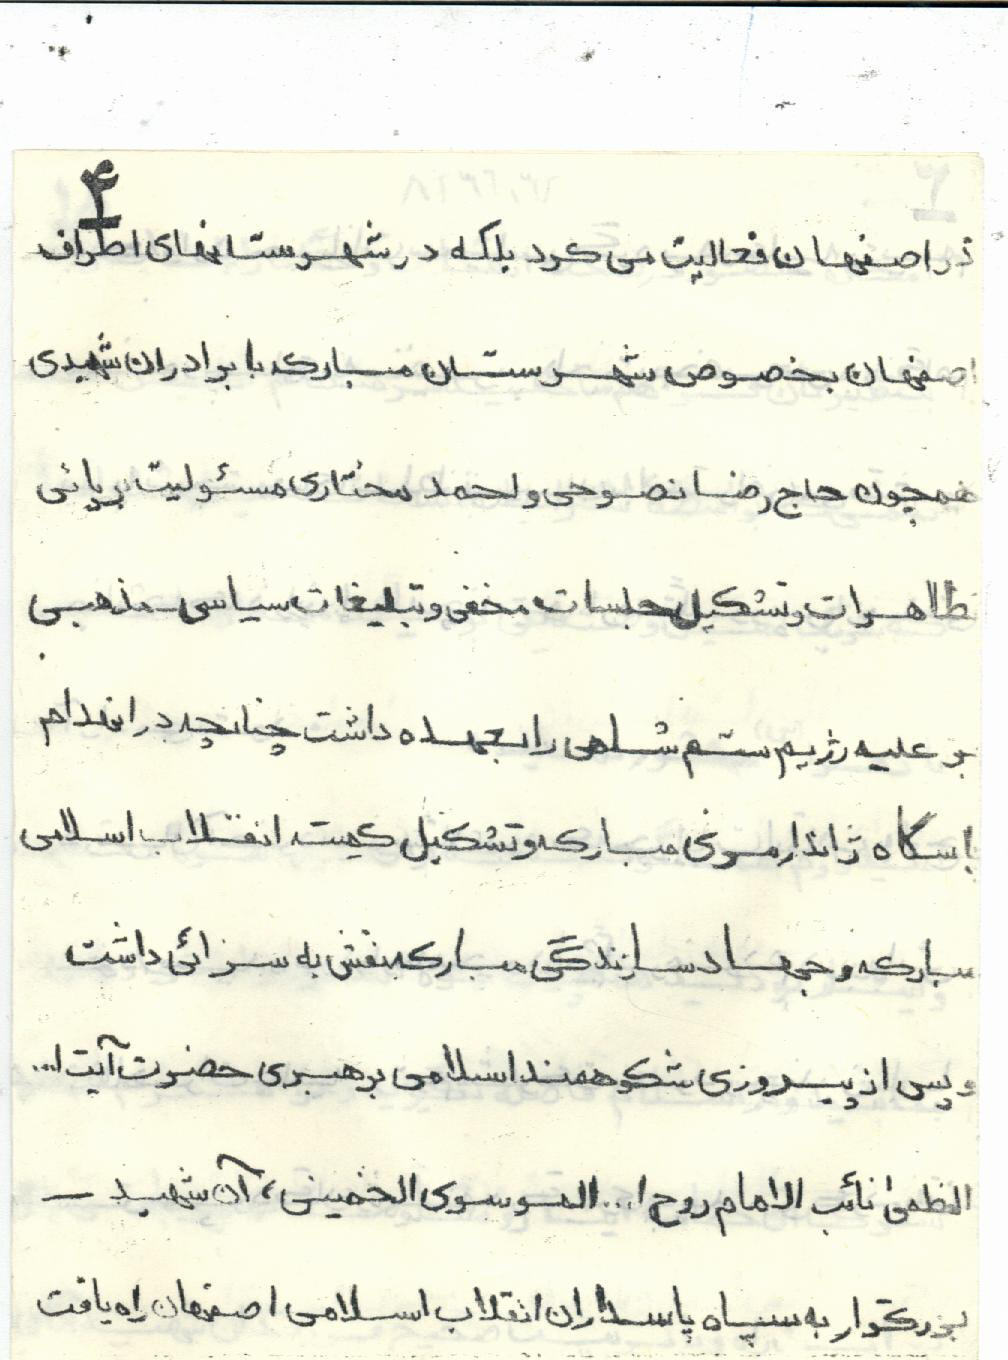 ۴
در اصفهان فعالیت می کرد بلکه در شهرستانهای اطراف
اصفهان بخصوص شهرستان مبارکه با برادران شهیدی
همچون حاج رضا نصوحی و احمد مختاری مسئولیت برپائی
تظاهرات و تشکیل جلسات مخفی و تبلیغات سیاسی مذهبی
بر علیه رژیم ستم شاهی را بعهده داشت چنانچه در انهدام
پاسگاه ژاندارمری مبارکه و تشکیل کمیته انقلاب اسلامی
مبارکه و جهاد سازندگی مبارکه نقش به سزائی داشت
و پس از پیروزی شکوهمند اسلامی برهبری حضرت آیت ا...
العظمی نائب الامام روح ا... الموسوی الخمینی، آن شهید —
بزرگوار به سپاه پاسداران انقلاب اسلامی اصفهان راه یافت